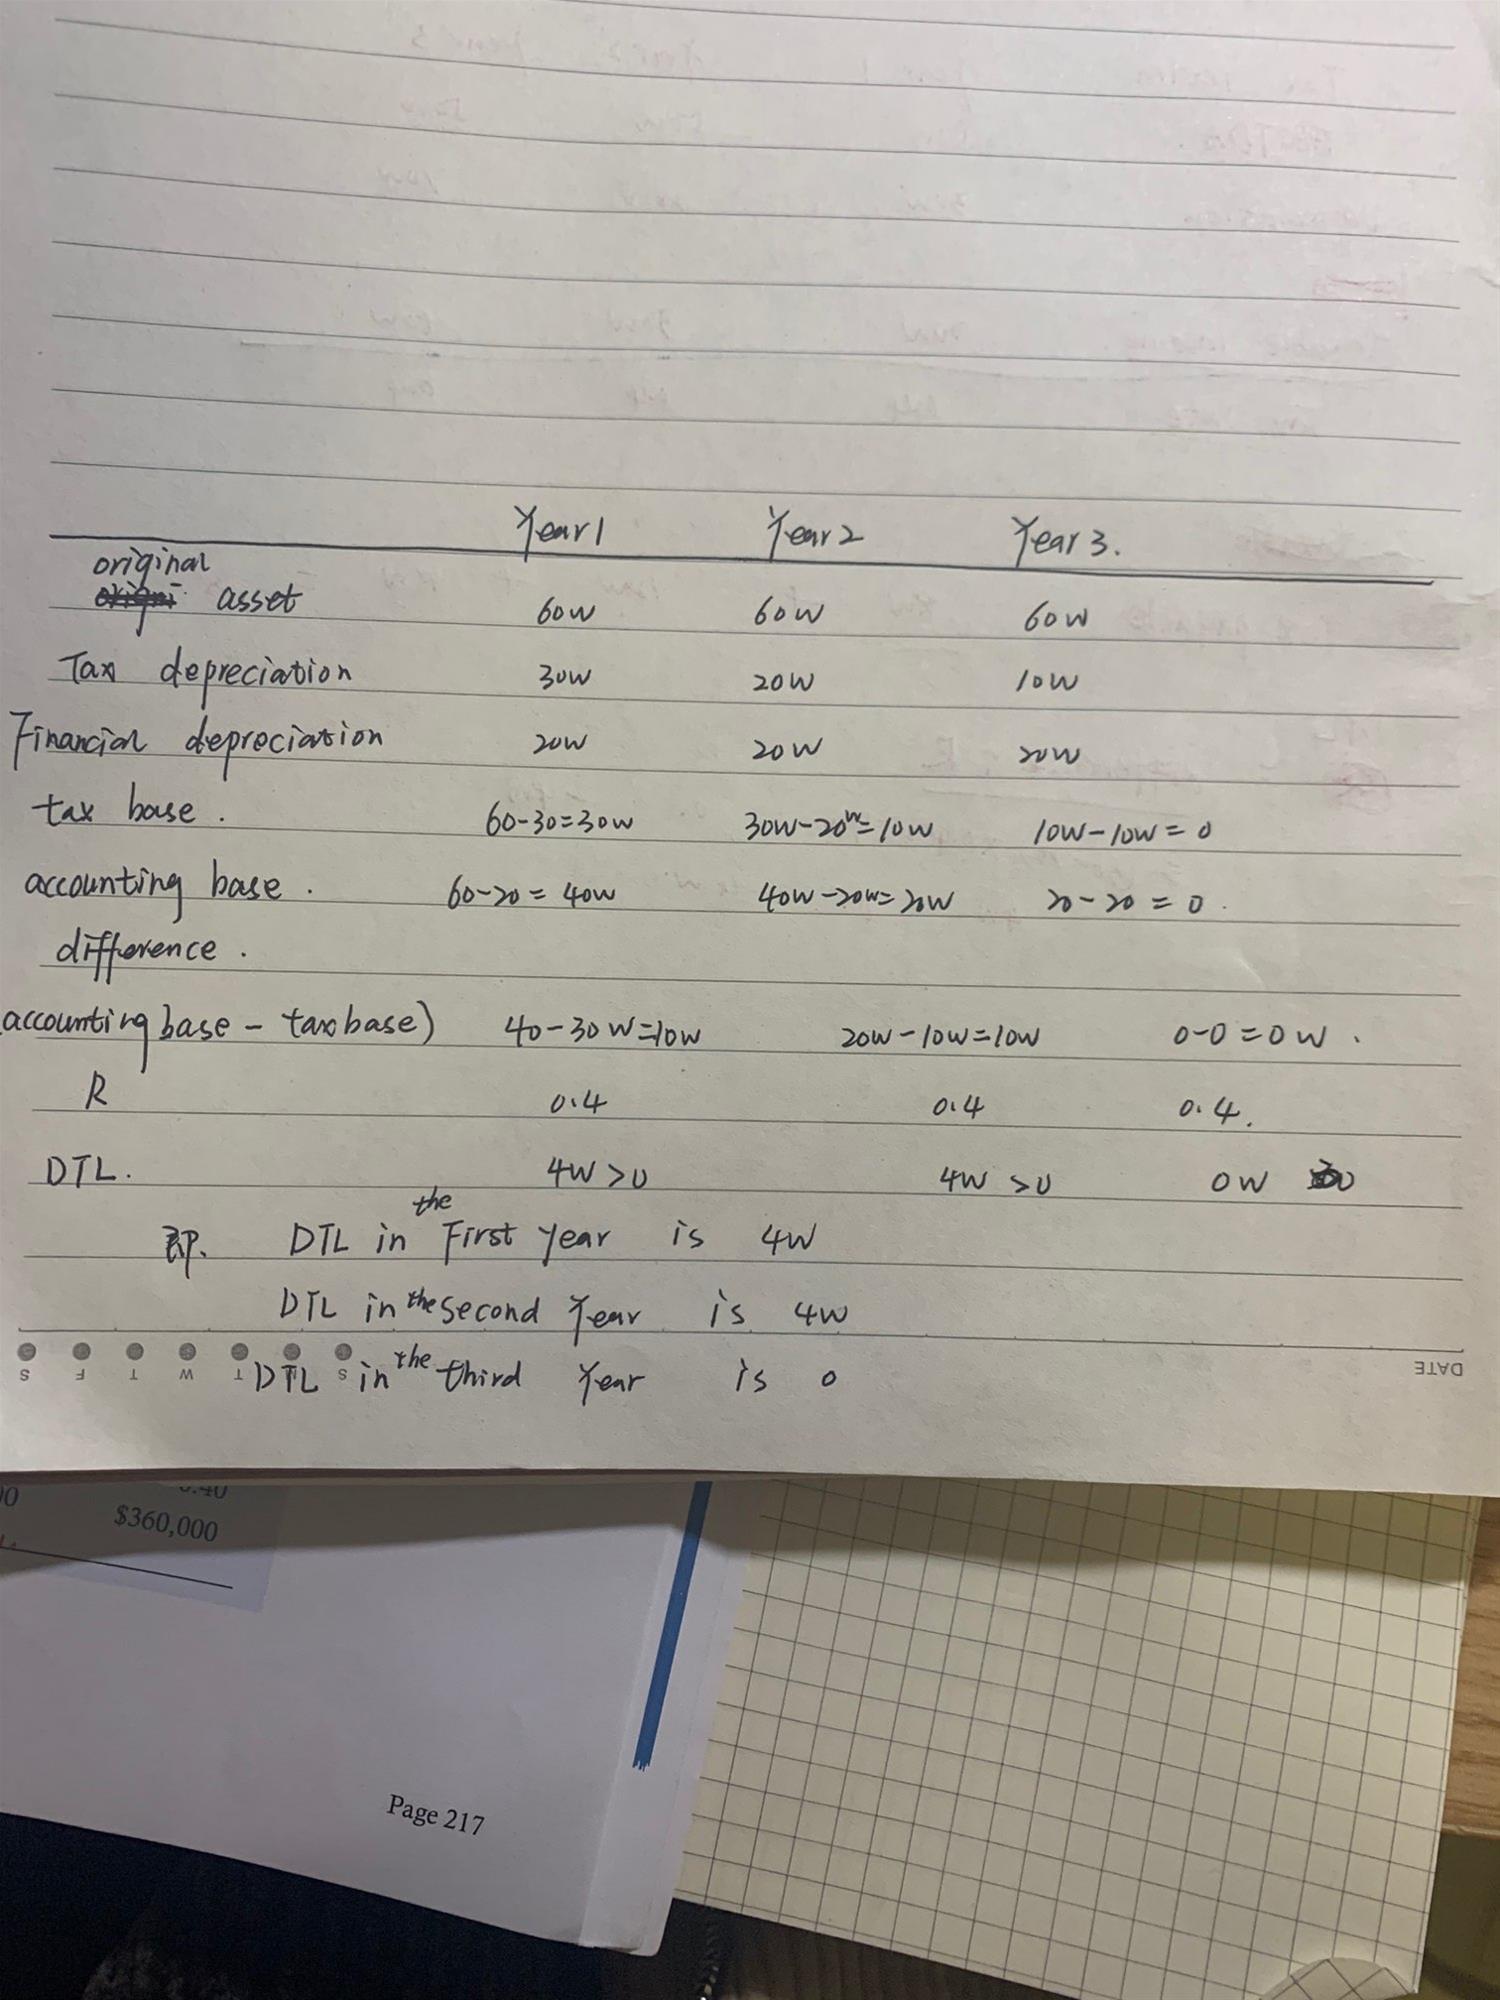 Year 1 Year 2 Year 3.
original
asset 60W 60W 60W
Tax depreciation 30W 20W 10W
Financial depreciation 20W 20W 20W
tax base. 60-30=30W 30W-20W=10W 10W-10W=0
accounting base. 60-20=40W 40W-20W=20W 20-20=0.
difference.
accounting base - tax base) 40-30W=10W 20W-10W=10W 0-0=0W.
R 0.4 0.4 0.4.
DTL. 4W>0 4W>0 0W
即. DTL in the First year is 4W
DTL in the second Year is 4W
DTL in the third Year is 0
S F T W T S
DATE
0.40
$360,000
Page 217